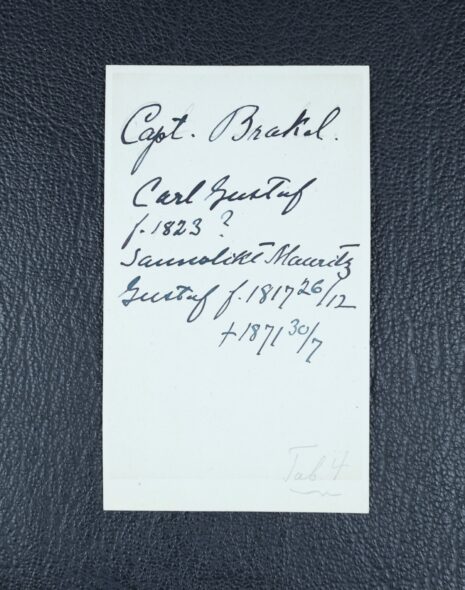 Capt. Brakel.
Carl Gustaf
f. 1823 ?
Sannolikt Mauritz
Gustaf f. 1817 26/12
+ 1871 30/7
Tab. 4